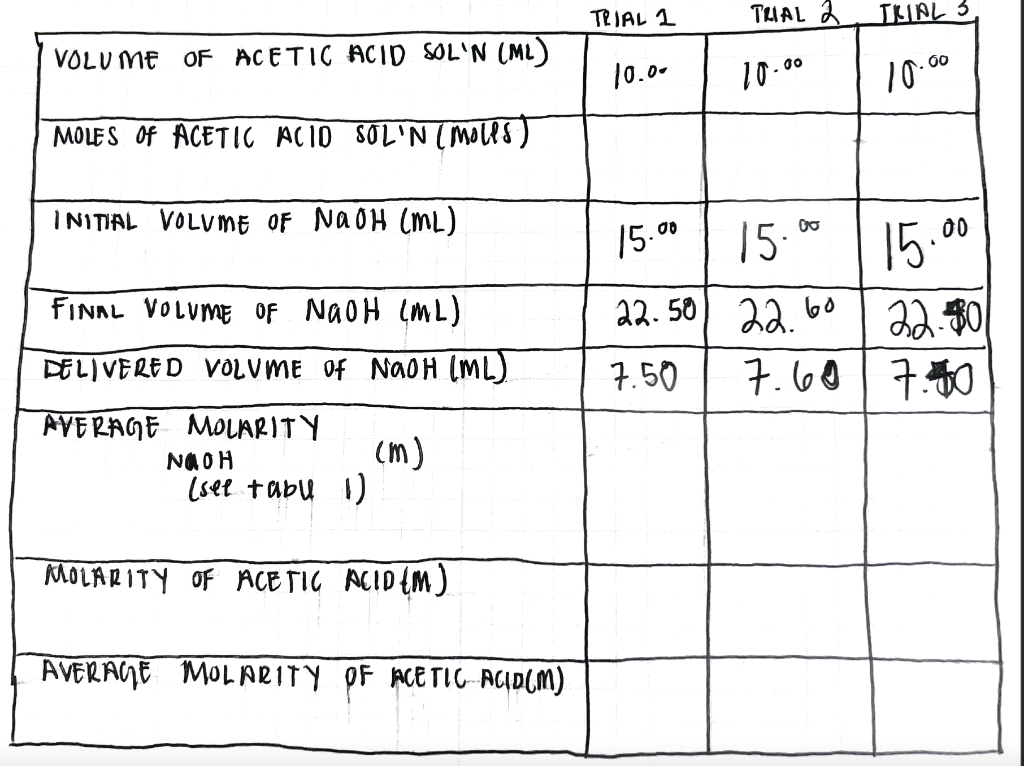 TRIAL 1 TRIAL 2 TRIAL 3
VOLUME OF ACETIC ACID SOL'N (ML) 10.00 10.00 10.00
MOLES OF ACETIC ACID SOL'N (moles)
INITIAL VOLUME OF NaOH (mL) 15.00 15.00 15.00
FINAL VOLUME OF NaOH (mL) 22.50 22.60
DELIVERED VOLUME OF NaOH (ML) 7.50 7.60
AVERAGE MOLARITY
NaOH (m)
(see table 1)
MOLARITY OF ACETIC ACID (M)
AVERAGE MOLARITY OF ACETIC ACID (M)